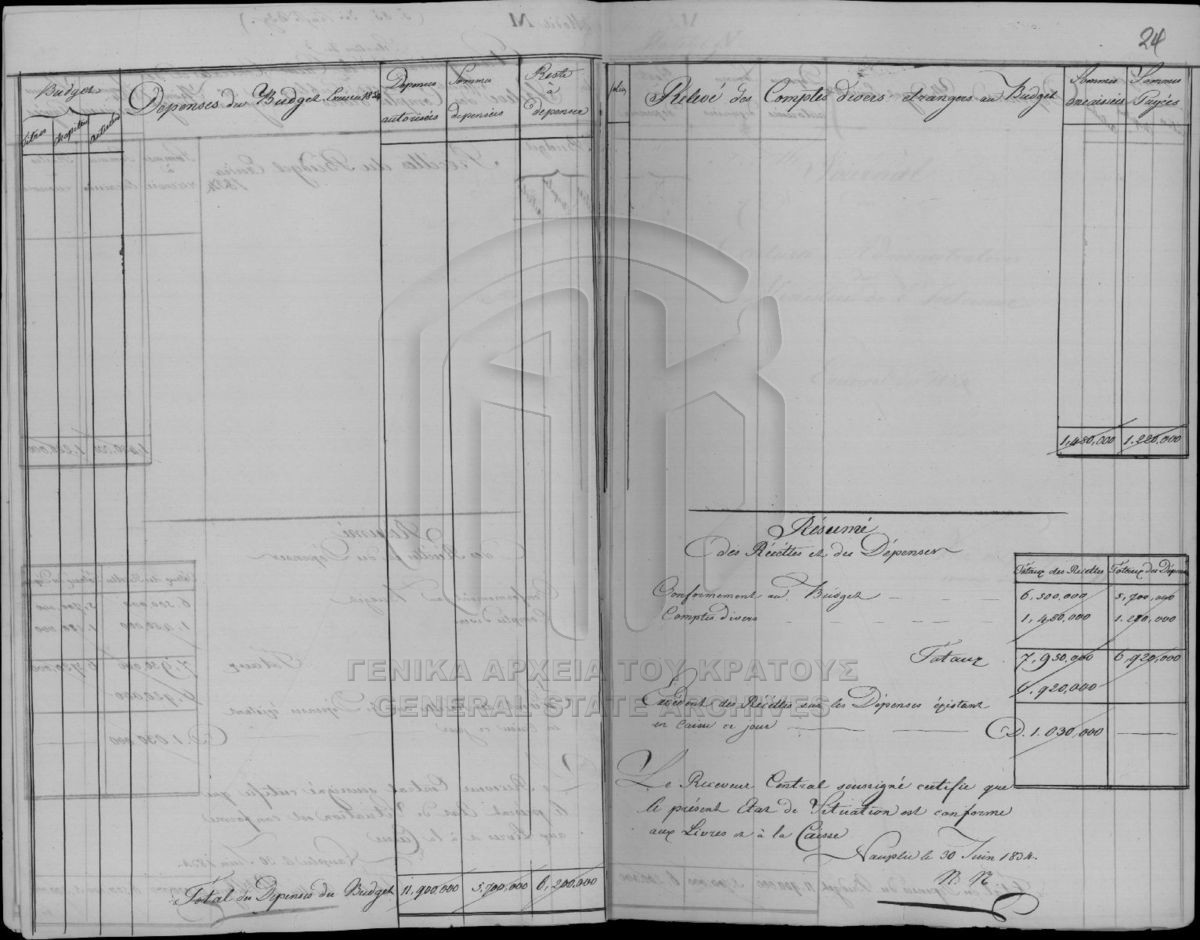 Budget
titres
chapitres
articles
Dépenses du Budget Exercice 1834
Dépenses
autorisées
Somme
dépensées
Reste
à
dépenser
Total du Dépenses du Budget 11.900,000 5.700,000 6,200,000
24
Relevé des Comptes divers étrangers au Budget
Sommes
encaissées
Sommes
Payées
1,450,000 1.220,000
Résumé
des Récettes et des Dépenses
Totaux des Recettes Totaux des Dépenses
Conformement au Budget 6,500,000 5,700,000
Comptes divers 1,450,000 1.220,000
Totaux 7,950,000 6,920,000
6,920,000
Excédent des Récettes sur les Dépenses éxistant
en Caisse ce jour D. 1.030,000
Le Receveur Central soussigné certifie que
le présent Etat de Situation est conforme
aux Livres et à la Caisse
Nauplie le 30 Juin 1834.
N. N.
ΓΕΝΙΚΑ ΑΡΧΕΙΑ ΤΟΥ ΚΡΑΤΟΥΣ
GENERAL STATE ARCHIVES